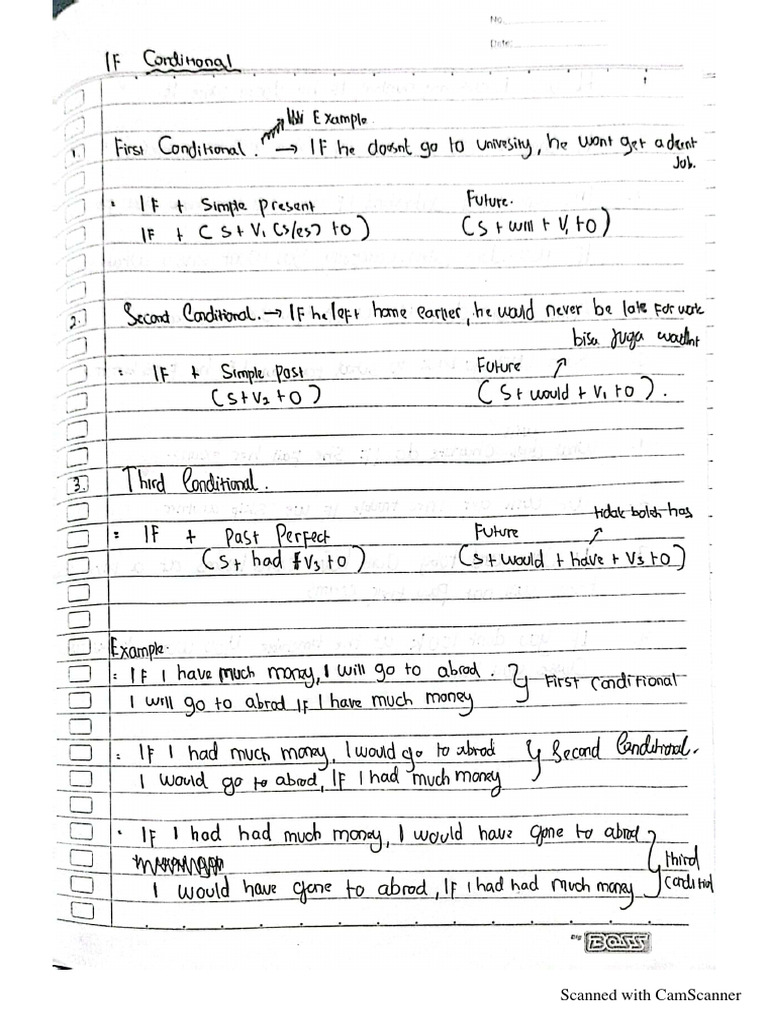 No.
Date:
IF Conditional
Example.
1. First Conditional. → IF he doesnt go to univesity, he wont get a decent
Job.
: IF + Simple present Future.
IF + ( S + V1 (s/es) + O ) (S + will + V1 + O)
2. Second Conditional. → IF he left home earlier, he would never be late for work
bisa juga wouldnt
: IF + Simple past Future
(S + V2 + O ) ( S + would + V1 + O ) .
3. Third Conditional.
tidak boleh has
: IF + Past Perfect Future
(S + had + V3 + O ) (S + would + have + V3 + O)
Example.
: IF I have much money, I will go to abrod .
First Conditional
I will go to abrod IF I have much money
: IF I had much money, I would go to abrod Second Conditional.
I would go to abrod, IF I had much money
. IF I had had much money, I would have gone to abrod
third
I would have gone to abrod, IF I had had much money
BOSS
Scanned with CamScanner